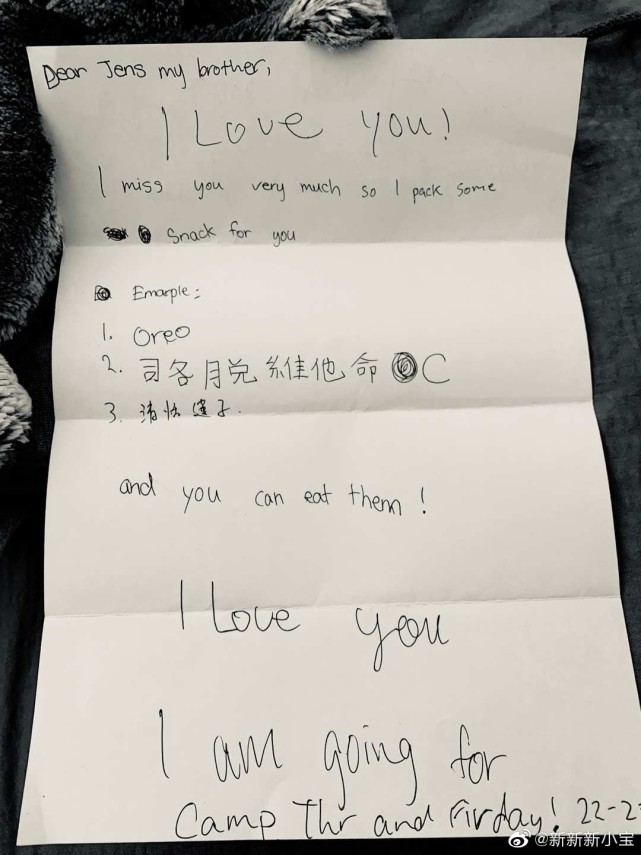 Dear Jens my brother,
I Love you!
I miss you very much so I pack some
Snack for you
Emarple:
1. Oreo
2. 司各月兌維他命 C
3. 清怡蓮子.
and you can eat them!
I Love you
I am going for
Camp Thr and Firday! 22-2
@新新新小宝